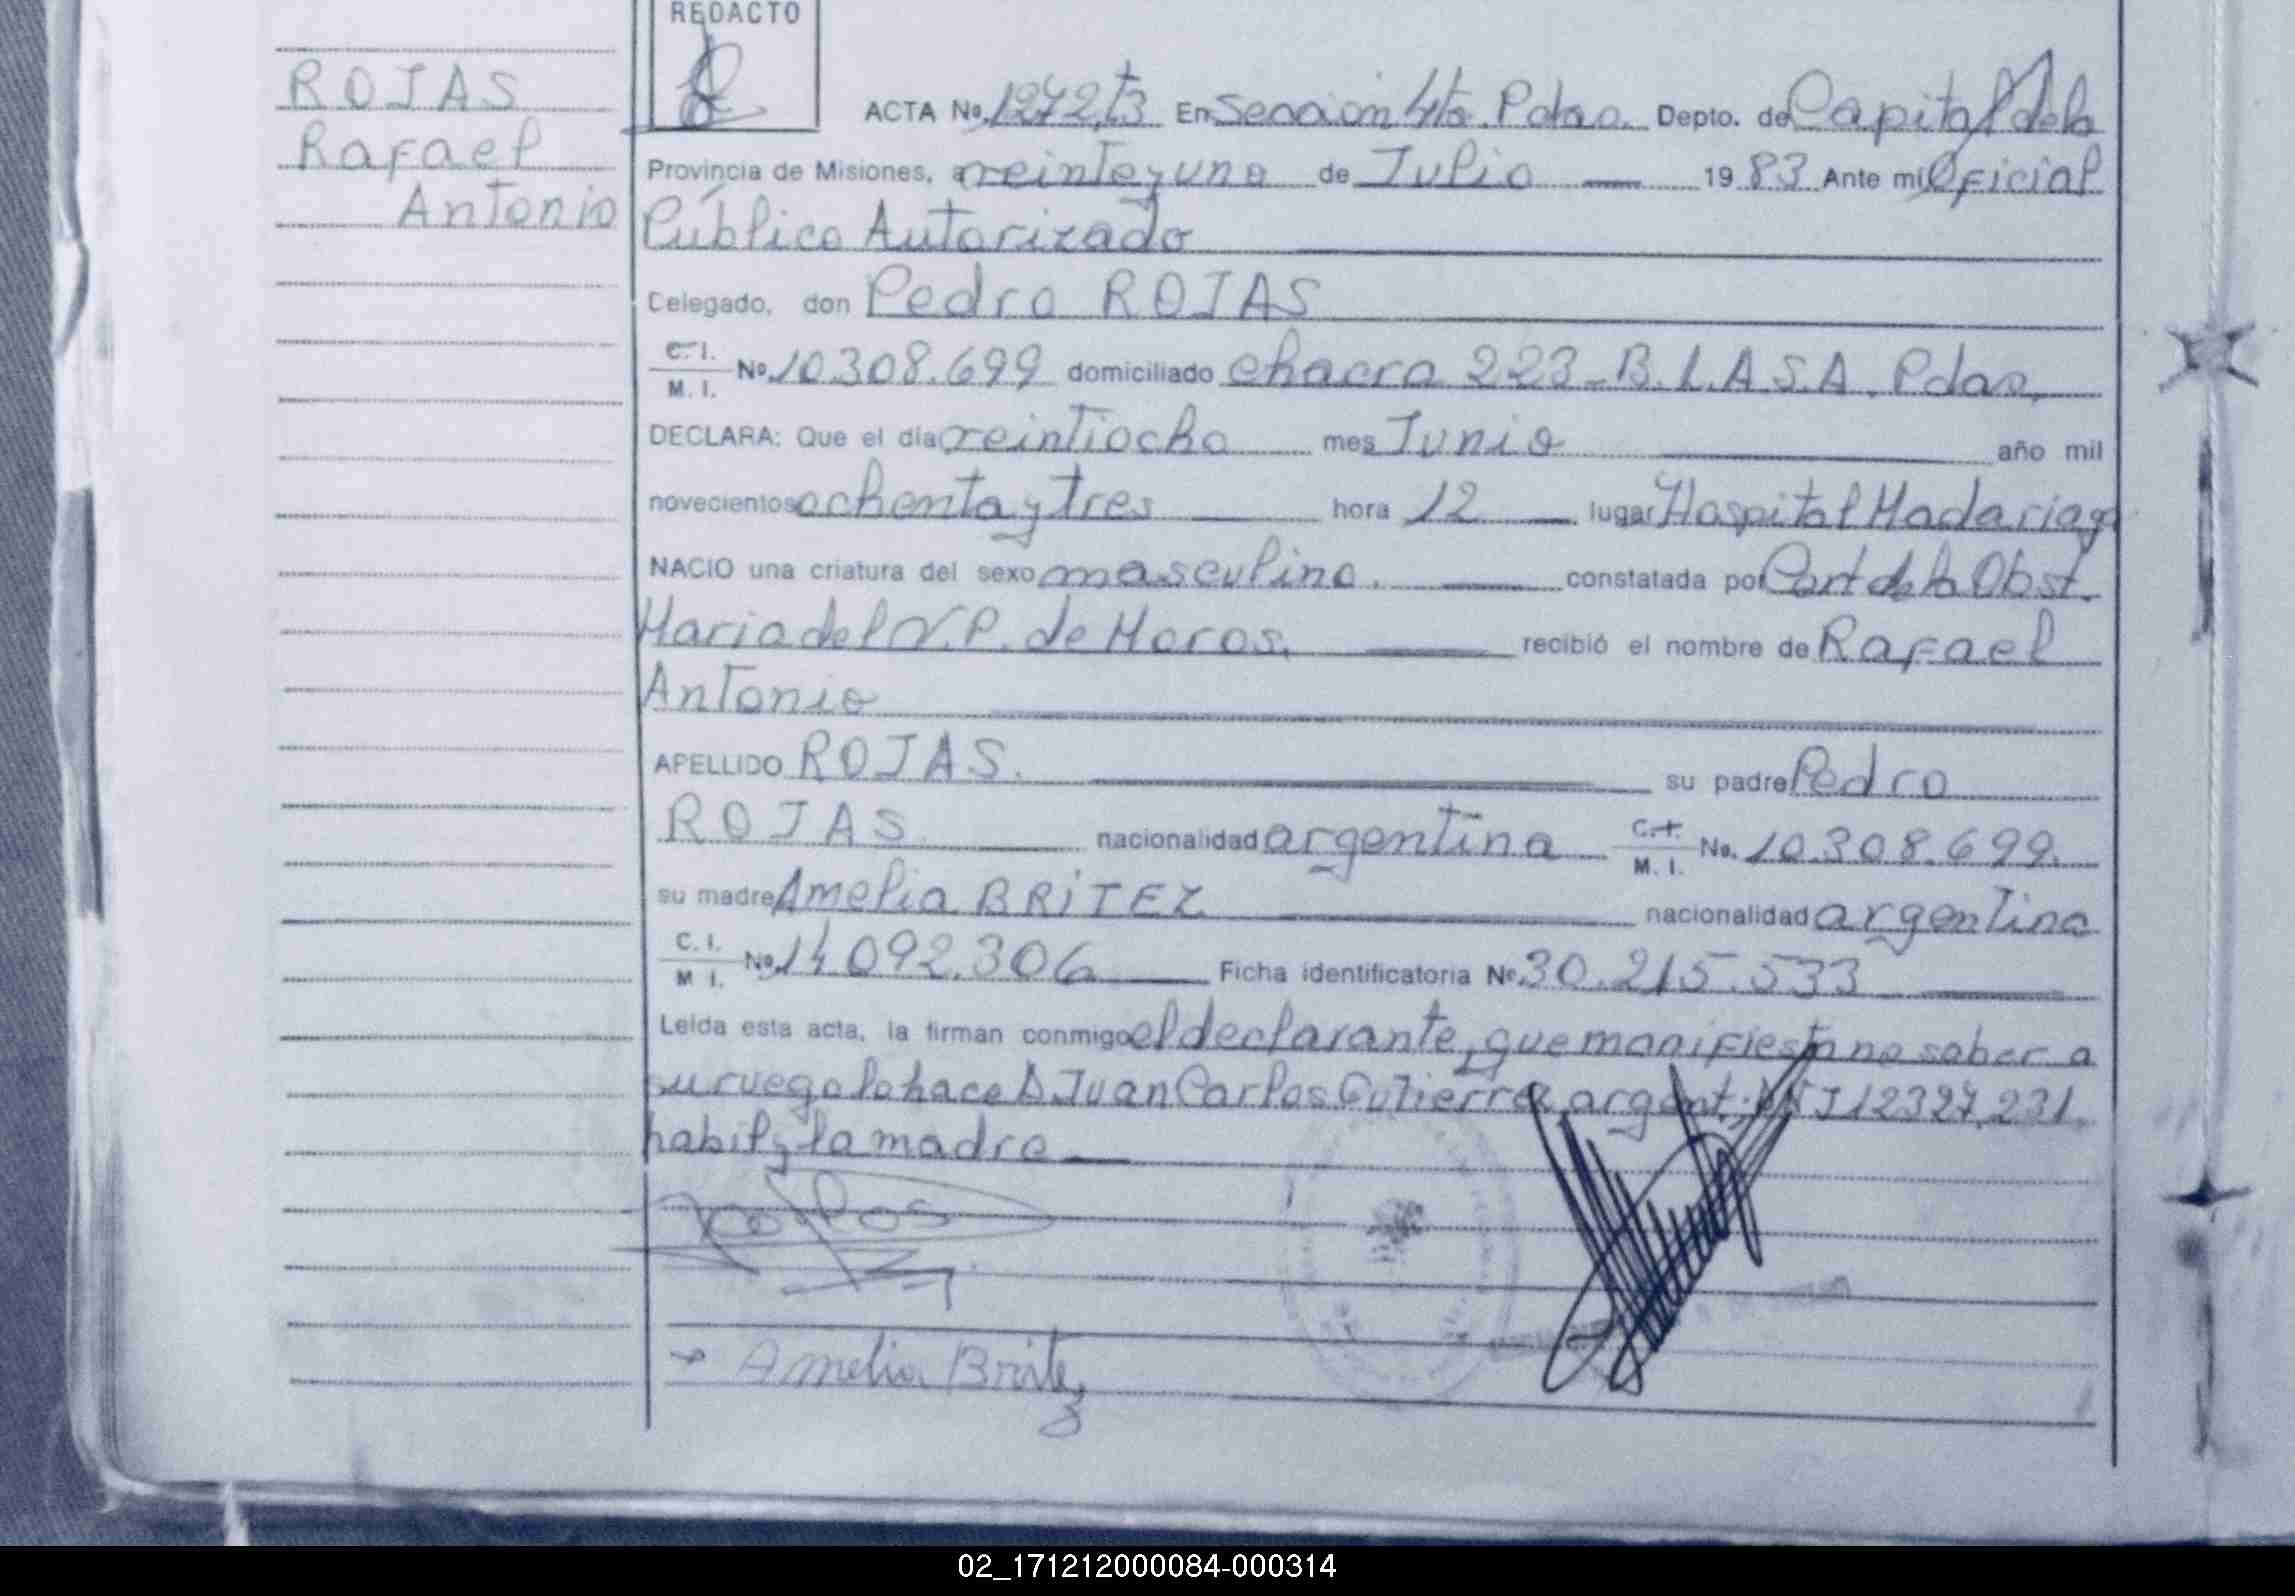 REDACTO
ROJAS
Rafael
Antonio
ACTA No. 1272, t3 En Sección 4ta. Pdas. Depto. de Capital de la
Provincia de Misiones, a veinte y uno de Julio 19 83 Ante mi Oficial
Público Autorizado
Delegado, don Pedro ROJAS
C. I. / M. I. No. 10.308.699 domiciliado chacra 223 - B. L.A.S.A. Pdas.
DECLARA: Que el día veintiocho mes Junio año mil
novecientos ochenta y tres hora 12 lugar Hospital Madariaga
NACIO una criatura del sexo masculino. constatada por Cert de la Obst.
Maria del N. P. de Moros. recibió el nombre de Rafael
Antonio
APELLIDO ROJAS. su padre Pedro
ROJAS nacionalidad argentina C. I. / M. I. No. 10.308.699.
su madre Amelia BRITEZ nacionalidad argentina
C. I. / M I. No. 14.092.306 Ficha identificatoria No. 30.215.533
Leída esta acta, la firman conmigo el declarante, que manifiesta no saber a
su ruego lo hace D. Juan Carlos Gutierrez, argent; DNI 12327,231.
habil, y la madre
Amelia Britez
02_171212000084-000314